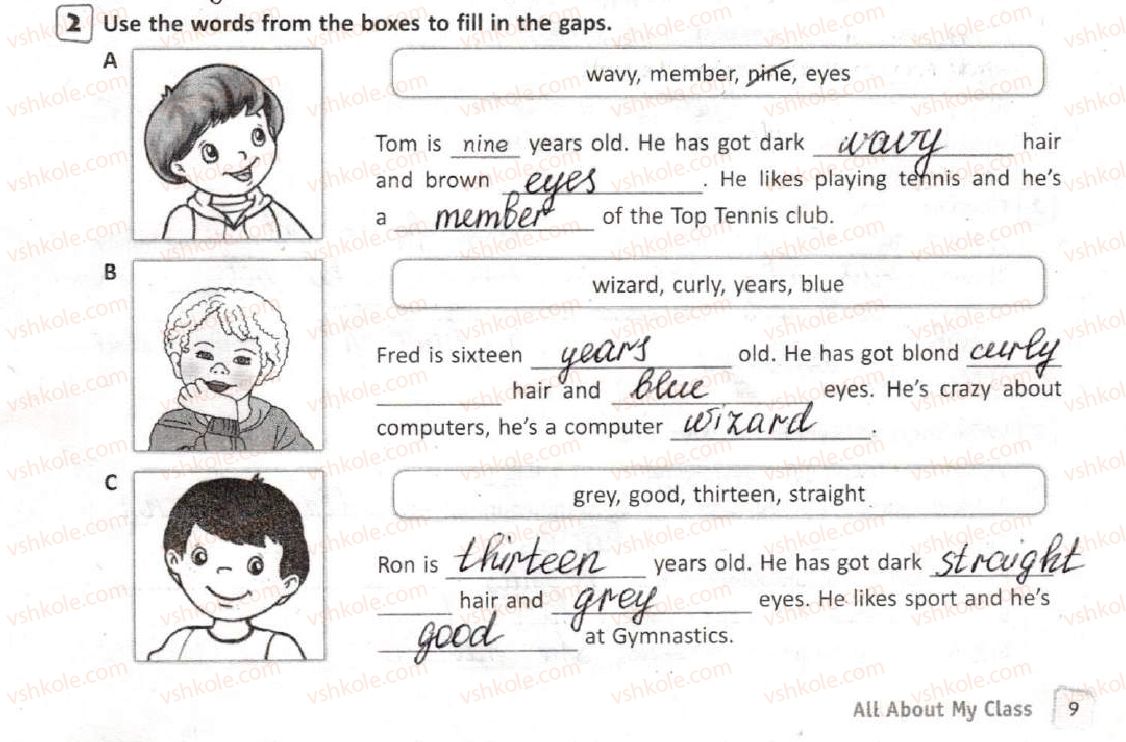 2 Use the words from the boxes to fill in the gaps.
A
wavy, member, nine, eyes
Tom is nine years old. He has got dark wavy hair
and brown eyes. He likes playing tennis and he's
a member of the Top Tennis club.
B
wizard, curly, years, blue
Fred is sixteen years old. He has got blond curly
hair and blue eyes. He's crazy about
computers, he's a computer wizard.
C
grey, good, thirteen, straight
Ron is thirteen years old. He has got dark straight
hair and grey eyes. He likes sport and he's
good at Gymnastics.
All About My Class 9
vshkole.com